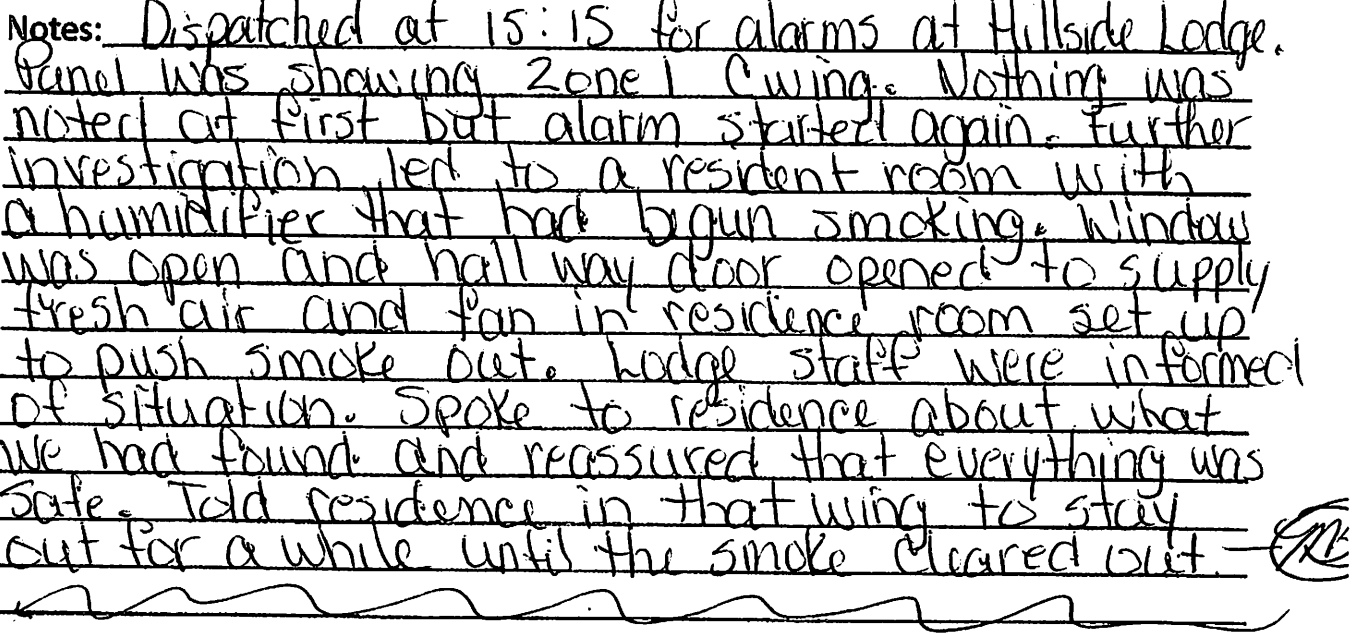 Notes: Dispatched at 15:15 for alarms at Hillside Lodge.
Panel was showing Zone 1 C wing. Nothing was
noted at first but alarm started again. Further
investigation led to a resident room with
a humidifier that had begun smoking. Window
was open and hall way door opened to supply
fresh air and fan in residence room set up
to push smoke out. Lodge staff were informed
of situation. Spoke to residence about what
we had found and reassured that everything was
safe. Told residence in that wing to stay
out for a while until the smoke cleared out.